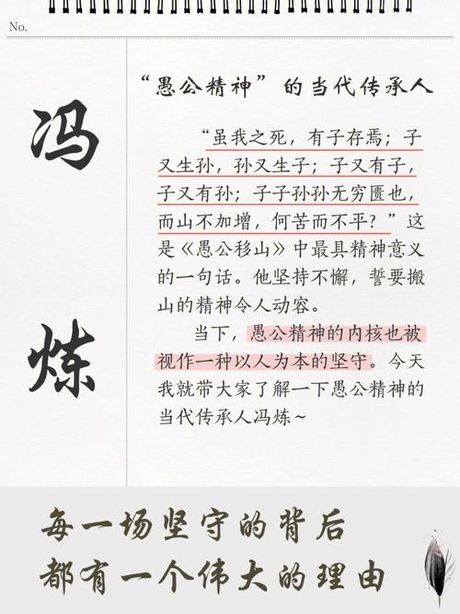 No.
冯
炼
“愚公精神”的当代传承人
“虽我之死，有子存焉；子
又生孙，孙又生子；子又有子，
子又有孙；子子孙孙无穷匮也，
而山不加增，何苦而不平？”这
是《愚公移山》中最具精神意义
的一句话。他坚持不懈，誓要搬
山的精神令人动容。
当下，愚公精神的内核也被
视作一种以人为本的坚守。今天
我就带大家了解一下愚公精神的
当代传承人冯炼～
每一场坚守的背后
都有一个伟大的理由